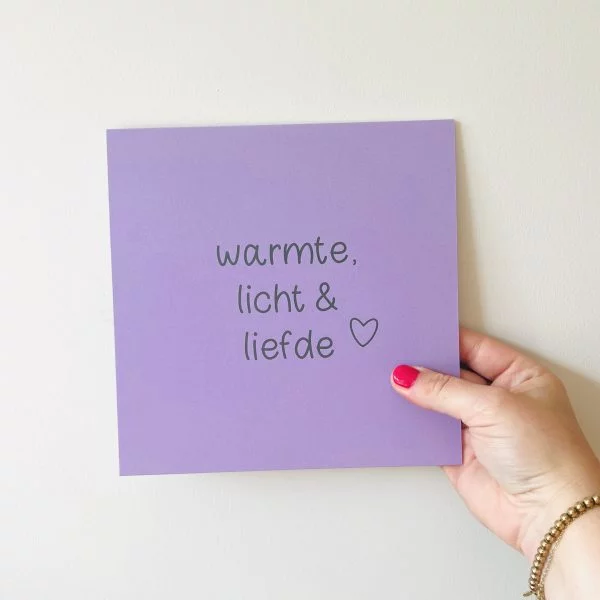 warmte,
licht &
liefde